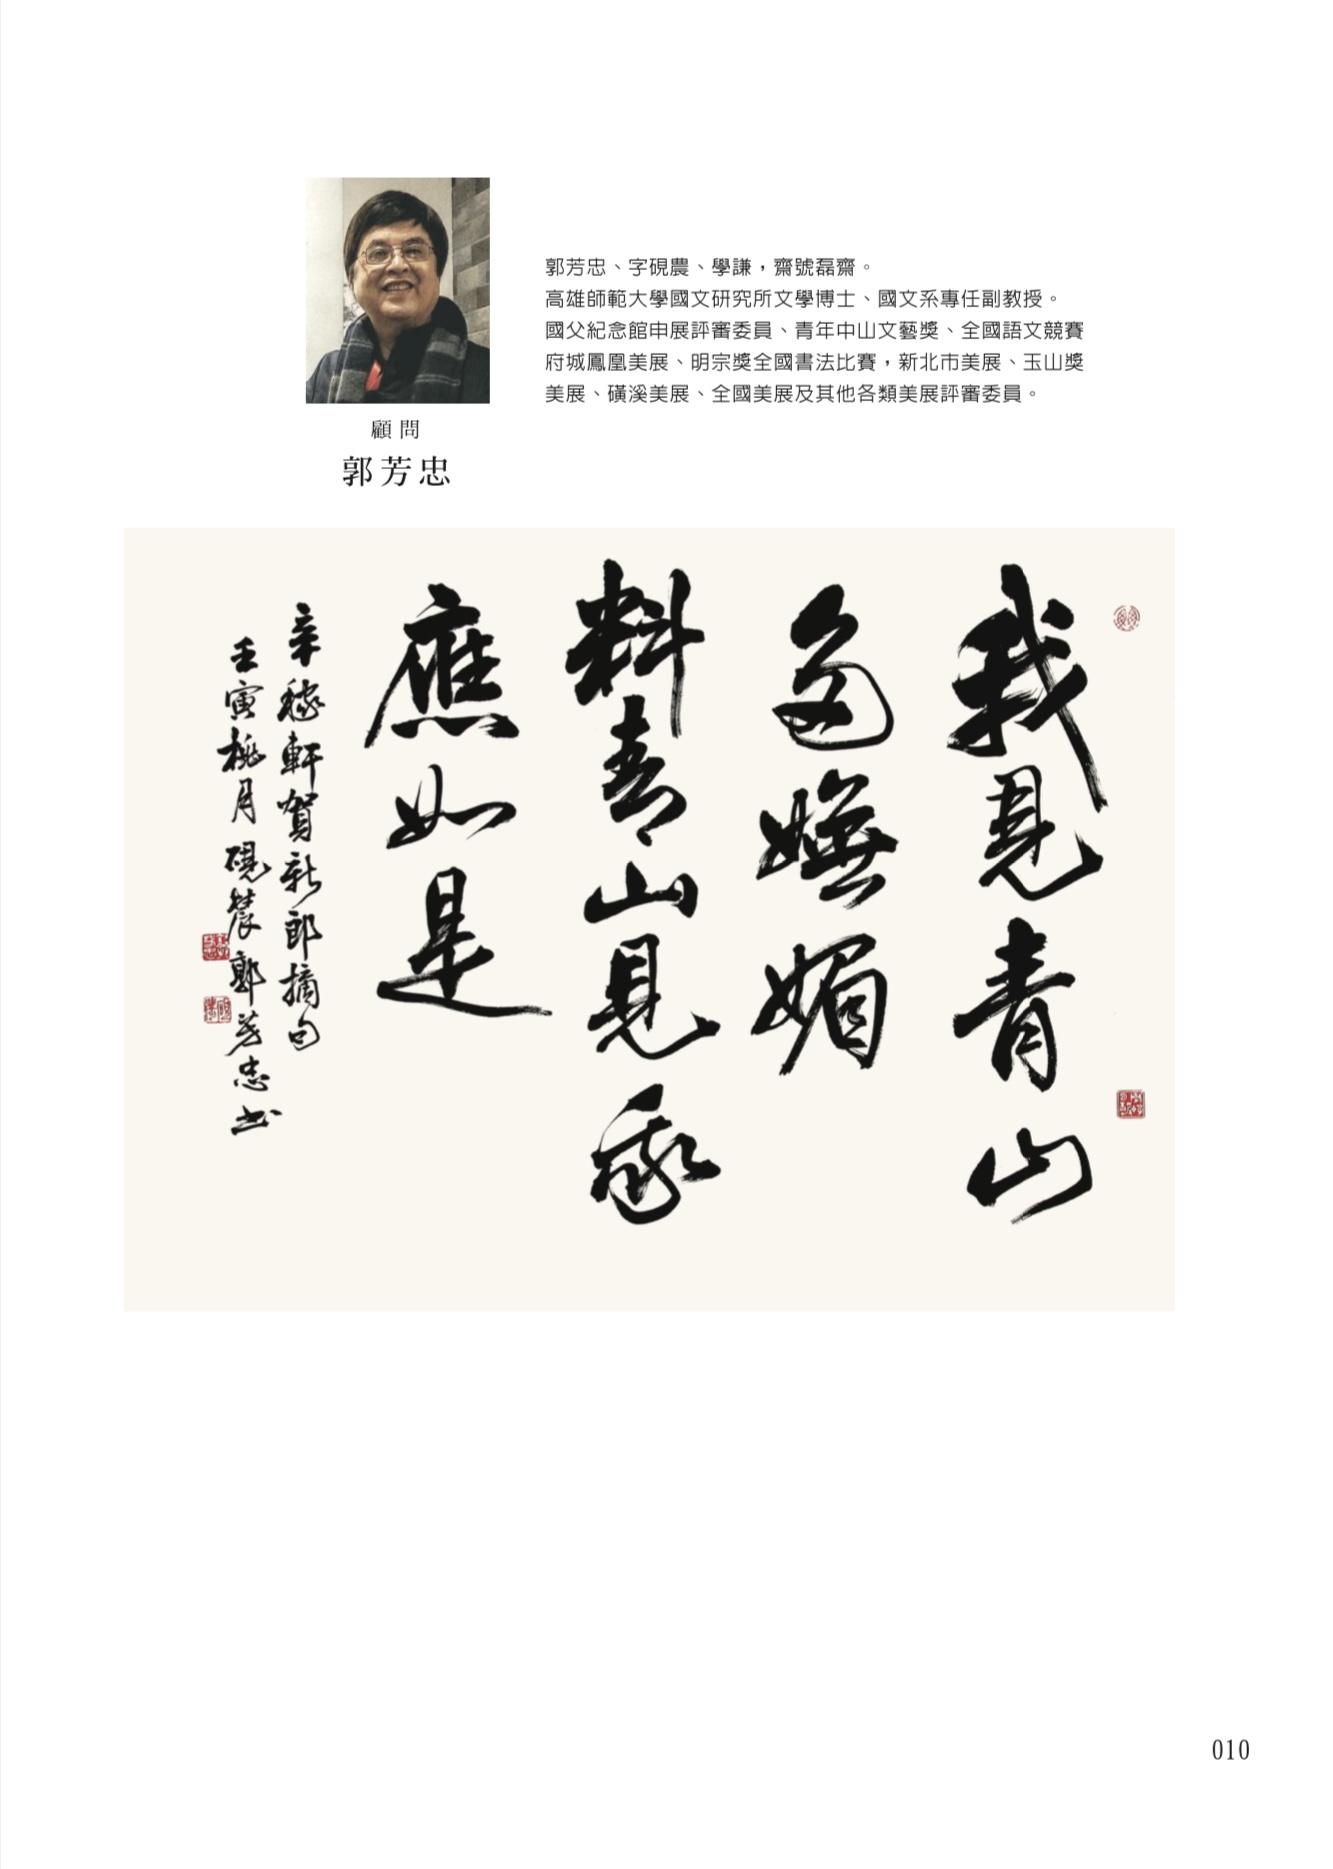 郭芳忠、字硯農、學謙，齋號磊齋。
高雄師範大學國文研究所文學博士、國文系專任副教授。
國父紀念館申展評審委員、青年中山文藝獎、全國語文競賽
府城鳳凰美展、明宗獎全國書法比賽，新北市美展、玉山獎
美展、磺溪美展、全國美展及其他各類美展評審委員。
顧問
郭芳忠
我見青山
多嫵媚
料青山見我
應如是
辛稼軒賀新郎摘句
壬寅桃月硯農郭芳忠書
010